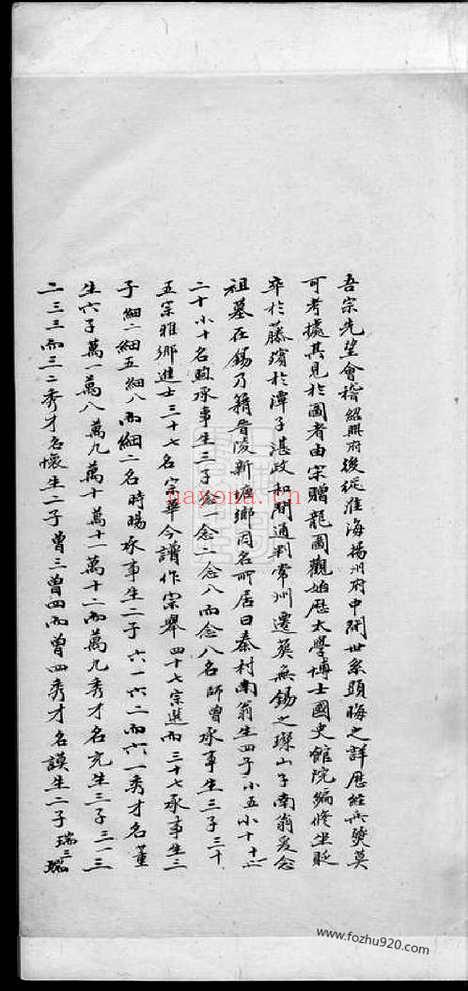 吾宗先望會稽紹興府後從淮海揚州府中間世系顕晦之詳歷經兵燹莫
可考據其見於圖者由宋贈龍圖觀始歷太學博士國史館院編修坐貶
卒於藤殯於潭子湛政和間通判常州遷葬無錫之璨山子南翁爰念
祖墓在錫乃籍晉陵新塘鄉因名所居曰秦村南翁生四子小五小十十
二十小十名煦承事生三子念一念二念八而念八名師曾承事生三子三十
五宗雅鄉進士三十七名宗華今譜作宗舉四十七宗選而三十七承事生三
子細二細五細八而細二名時暘承事生二子六一六二而六一秀才名董
生六子萬一萬八萬九萬十萬十一萬十二而萬九秀才名充生三子三一三
二三三而三二秀才名懷生二子曾三曾四而曾四秀才名謨生二子瑞三瑞
naxona.ha.cn
www.fozhu920.com